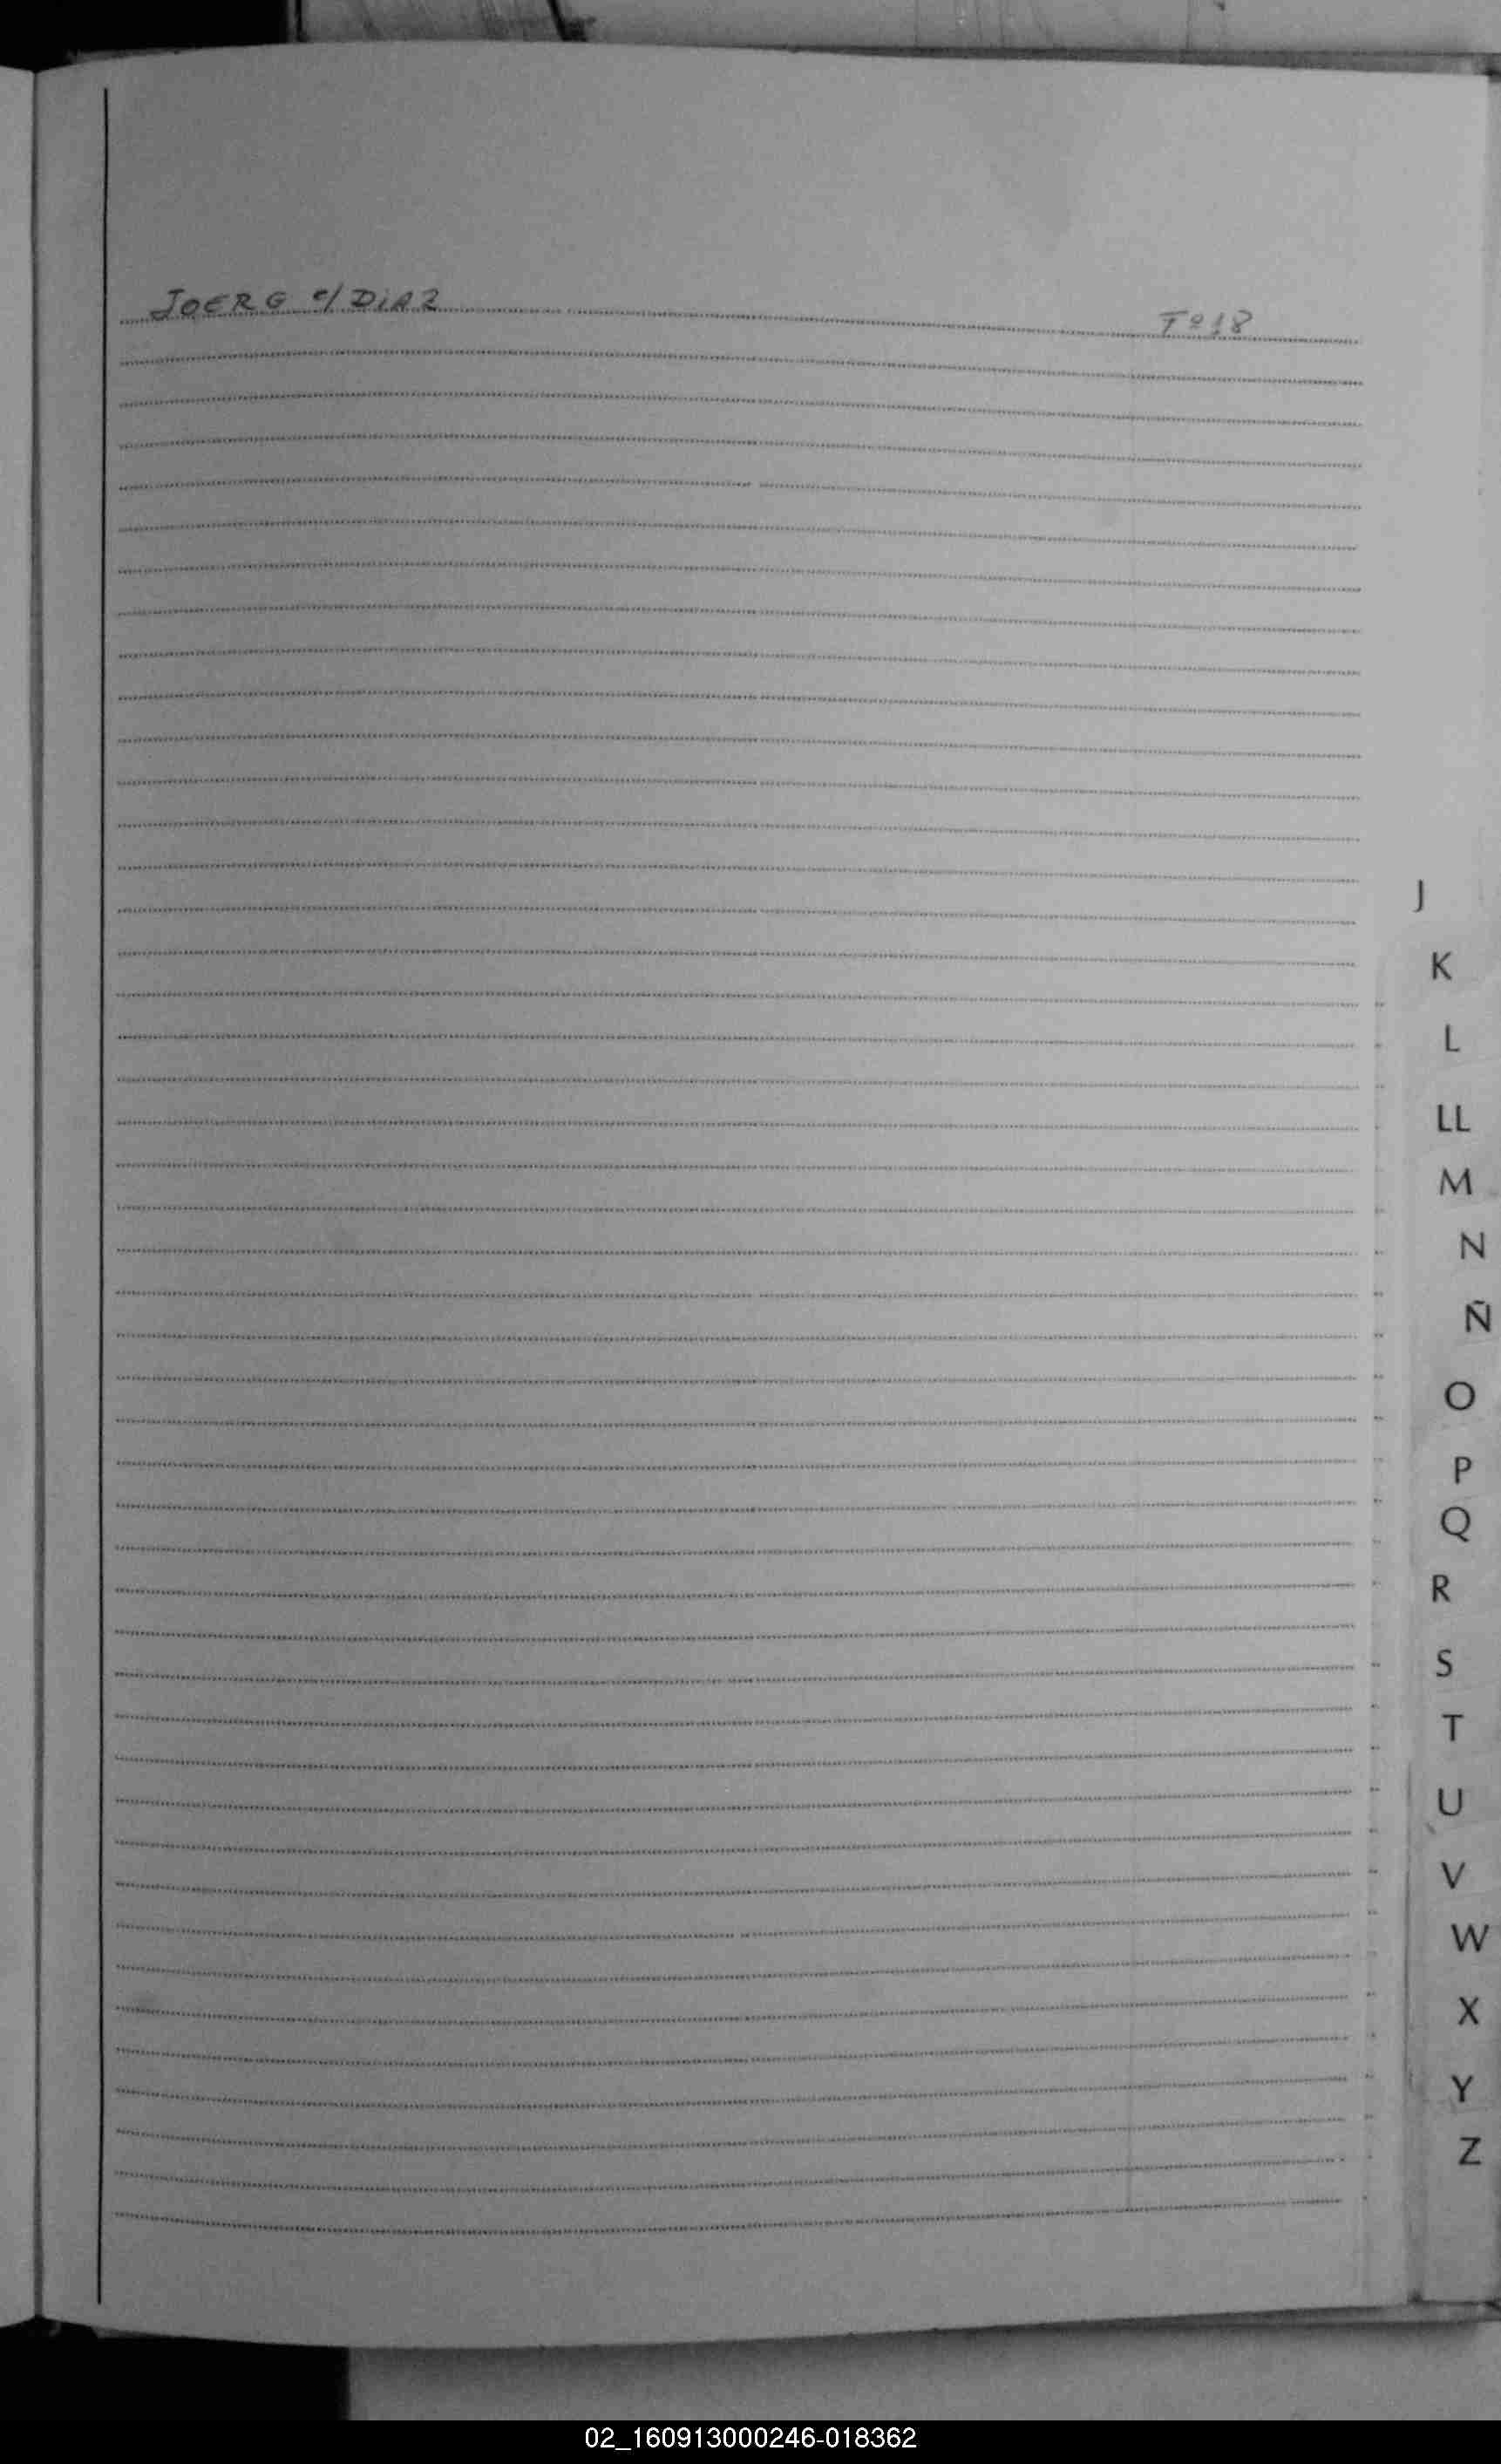 JOERG c/ DiAZ Fº 18
J
K
L
LL
M
N
Ñ
O
P
Q
R
S
T
U
V
W
X
Y
Z
02_160913000246-018362